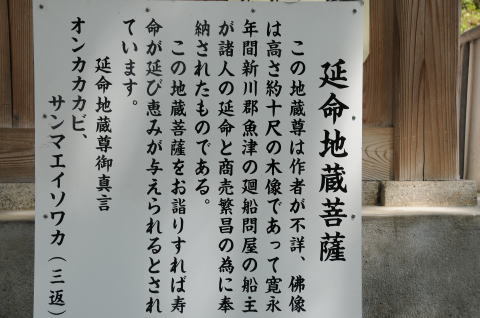 延命地蔵菩薩
この地蔵尊は作者が不詳、佛像
は高さ約十尺の木像であって寛永
年間新川郡魚津の廻船問屋の船主
が諸人の延命と商売繁昌の為に奉
納されたものである。
この地蔵菩薩をお詣りすれば寿
命が延び恵みが与えられるとされ
ています。
延命地蔵尊御真言
オンカカカビ、
サンマエイソワカ（三返）